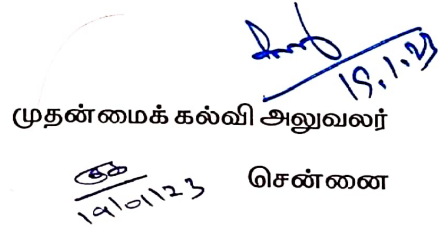 19.1.23
முதன்மைக் கல்வி அலுவலர்
சென்னை
19/01/23